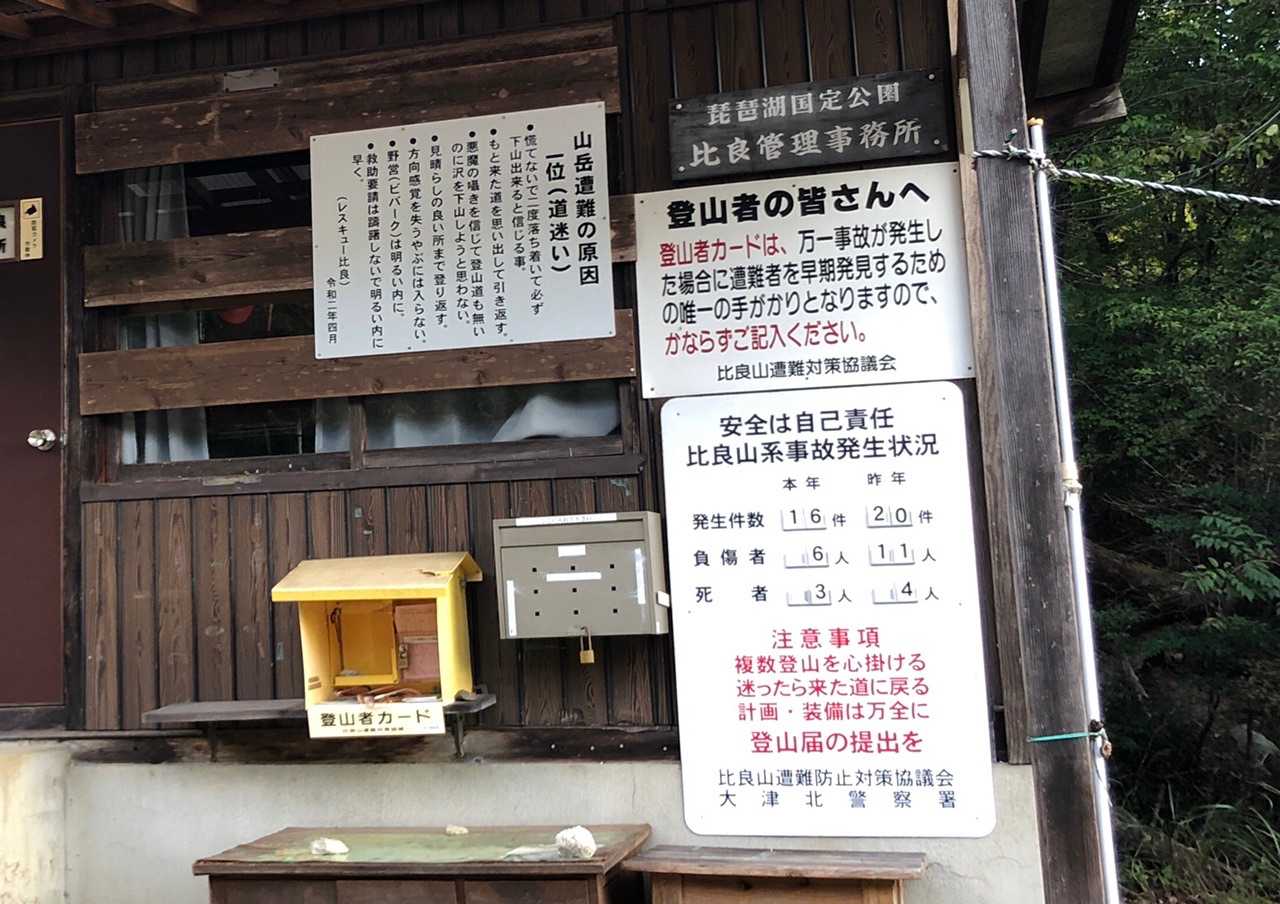 琵琶湖国定公園
比良管理事務所
山岳遭難の原因
一位(道迷い)
●慌てないで二度落ち着いて必ず
下山出来ると信じる事。
●もと来た道を思い出して引き返す。
●悪魔の囁きを信じて登山道も無い
のに沢を下山しようと思わない。
●見晴らしの良い所まで登り返す。
●方向感覚を失うやぶには入らない。
●野営(ビバーク)は明るい内に。
●救助要請は躊躇しないで明るい内に
早く。
(レスキュー比良)
令和二年四月
登山者の皆さんへ
登山者カードは、万一事故が発生し
た場合に遭難者を早期発見するため
の唯一の手がかりとなりますので、
かならずご記入ください。
比良山遭難対策協議会
安全は自己責任
比良山系事故発生状況
本年 昨年
発生件数 16件 20件
負傷者 6人 11人
死者 3人 4人
注意事項
複数登山を心掛ける
迷ったら来た道に戻る
計画・装備は万全に
登山届の提出を
比良山遭難防止対策協議会
大津北警察署
登山者カード